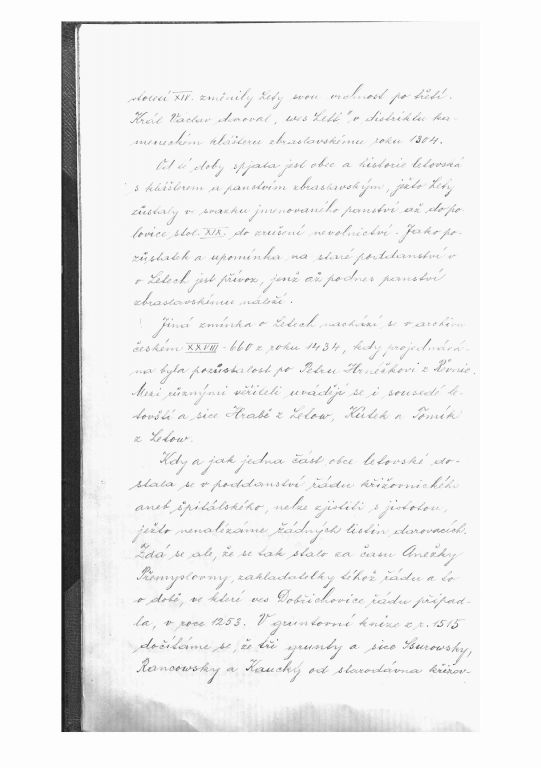 století XIV. změnily Lety svou vrchnost po třetí.
Král Vaclav daroval „wes Letž" v distriktu ka-
meneckém klášteru zbraslavskému roku 1304.
Od té doby spjata jest obec a historie letovská
s klášterem a panstvím zbraslavským, ježto Lety
zůstaly v svazku jmenovaného panství až do po-
lovice stol. XIX. do zrušení nevolnictví. Jako po-
zůstatek a upomínka na staré poddanství v
o Letech jest přívoz, jenž až podnes panství
zbraslavskému náleží.
Jiná zmínka o Letech nachází se v archivu
českém XXVIII - 660 z roku 1434, kdy projednává-
na byla pozůstalost po Petru Hrnéčkovi z Řevnic.
Mezi různými věřiteli uvádějí se i sousedé le-
tovští a sice Hrabě z Letow, Kútek a Tomík
z Letow.
Kdy a jak jedna část obce letovské do-
stala se v poddanství řádu křižovnického
aneb špitálského, nelze zjistiti s jistotou,
ježto nenalézáme žádných listin darovacích.
Zdá se ale, že se tak stalo za času Anežky
Přemyslovny, zakladatelky téhož řádu a to
v době, ve které ves Dobřichovice řádu připad-
la, v roce 1253. V gruntovní knize z r. 1515
dočítáme se, že tři grunty a sice
Rancowsky a Kaucký od starodávna křížov-